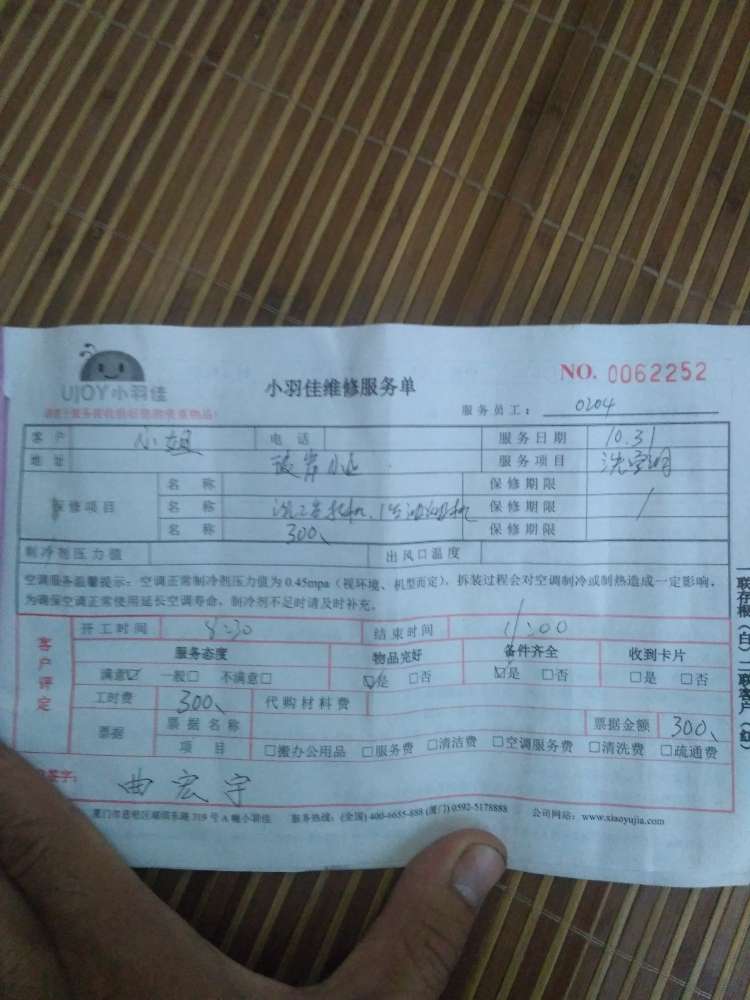 UJOY小羽佳
小羽佳维修服务单
NO. 0062252
服务员工： 0204
客户 小姐 电话 服务日期 10.31
地址 服务项目
保修项目 名称 保修期限
名称 保修期限
名称 300、 保修期限
制冷剂压力值 出风口温度
空调服务温馨提示：空调正常制冷剂压力值为 0.45mpa（视环境、机型而定），拆装过程会对空调制冷或制热造成一定影响，
为确保空调正常使用延长空调寿命，制冷剂不足时请及时补充。
客户评定
开工时间 8:30 结束时间 11:00
服务态度 物品完好 备件齐全 收到卡片
满意☑ 一般□ 不满意□ ☑是 □否 ☑是 □否 □是 □否
工时费 300、 代购材料费
票据 票据名称 票据金额 300、
项目 □搬办公用品 □服务费 □清洁费 □空调服务费 □清洗费 □疏通费
签字： 曲宏宇
服务热线：(全国) 400-6655-888 (厦门) 0592-5178888 公司网站：www.xiaoyujia.com
一联存根（白）二联客户（红）